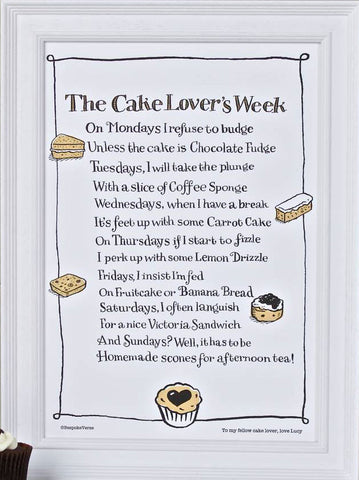 The Cake Lover's Week
On Mondays I refuse to budge
Unless the cake is Chocolate Fudge
Tuesdays, I will take the plunge
With a slice of Coffee Sponge
Wednesdays, when I have a break
It's feet up with some Carrot Cake
On Thursdays if I start to fizzle
I perk up with some Lemon Drizzle
Fridays, I insist I'm fed
On Fruitcake or Banana Bread
Saturdays, I often languish
For a nice Victoria Sandwich
And Sundays? Well, it has to be
Homemade scones for afternoon tea!
©BespokeVerse
To my fellow cake lover, love Lucy